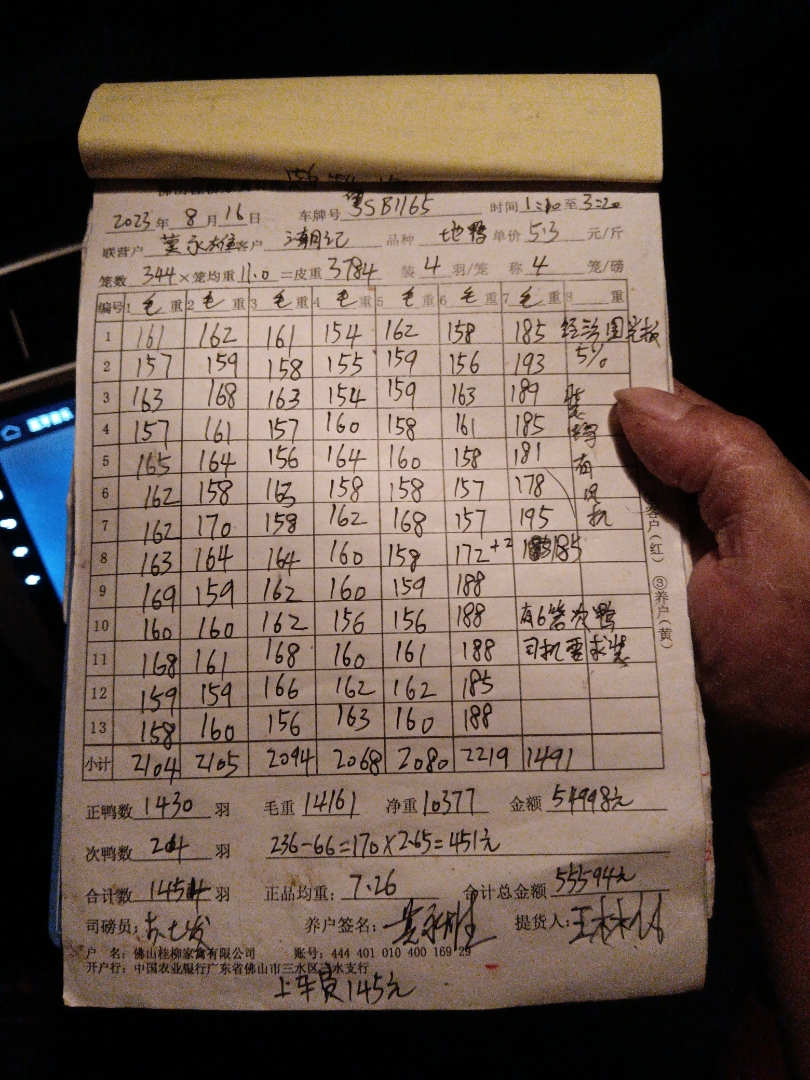 2023年8月16日 车牌号 粤SB1165 时间1:20至3:20
联营户 莫永雄 客户 潮记 品种 地鸭 单价 5.3 元/斤
笼数 344 ×笼均重 11.0 =皮重 3784 装 4 羽/笼 称 4 笼/磅
编号 1 毛重 2 毛重 3 毛重 4 毛重 5 毛重 6 毛重 7 毛重 8 重
1 161 162 161 154 162 158 185
2 157 159 158 155 159 156 193 5%
3 163 168 163 154 159 163 189 装
4 157 161 157 160 158 161 185 鸭
5 165 164 156 164 160 158 181 有
6 162 158 163 158 158 157 178 风
7 162 170 158 162 168 157 195 机
8 163 164 164 160 158 172+2 185
9 169 159 162 160 159 188
10 160 160 162 156 156 188 有6笼次鸭
11 168 161 168 160 161 188 司机要求装
12 159 159 166 162 162 185
13 158 160 156 163 160 188
小计 2104 2105 2094 2068 2080 2219 1491
正鸭数 1430 羽 毛重 14161 净重 10377 金额 54998元
次鸭数 24 羽 236-66=170×2.65=451元
合计数 1454 羽 正品均重: 7.26 合计总金额 55594元
司磅员: 养户签名: 莫永雄 提货人:
户 名: 佛山桂柳家禽有限公司 账号: 444 401 010 400 169 29
开户行: 中国农业银行广东省佛山市三水区三水支行
上车员145元
客户(红) ③养户(黄)